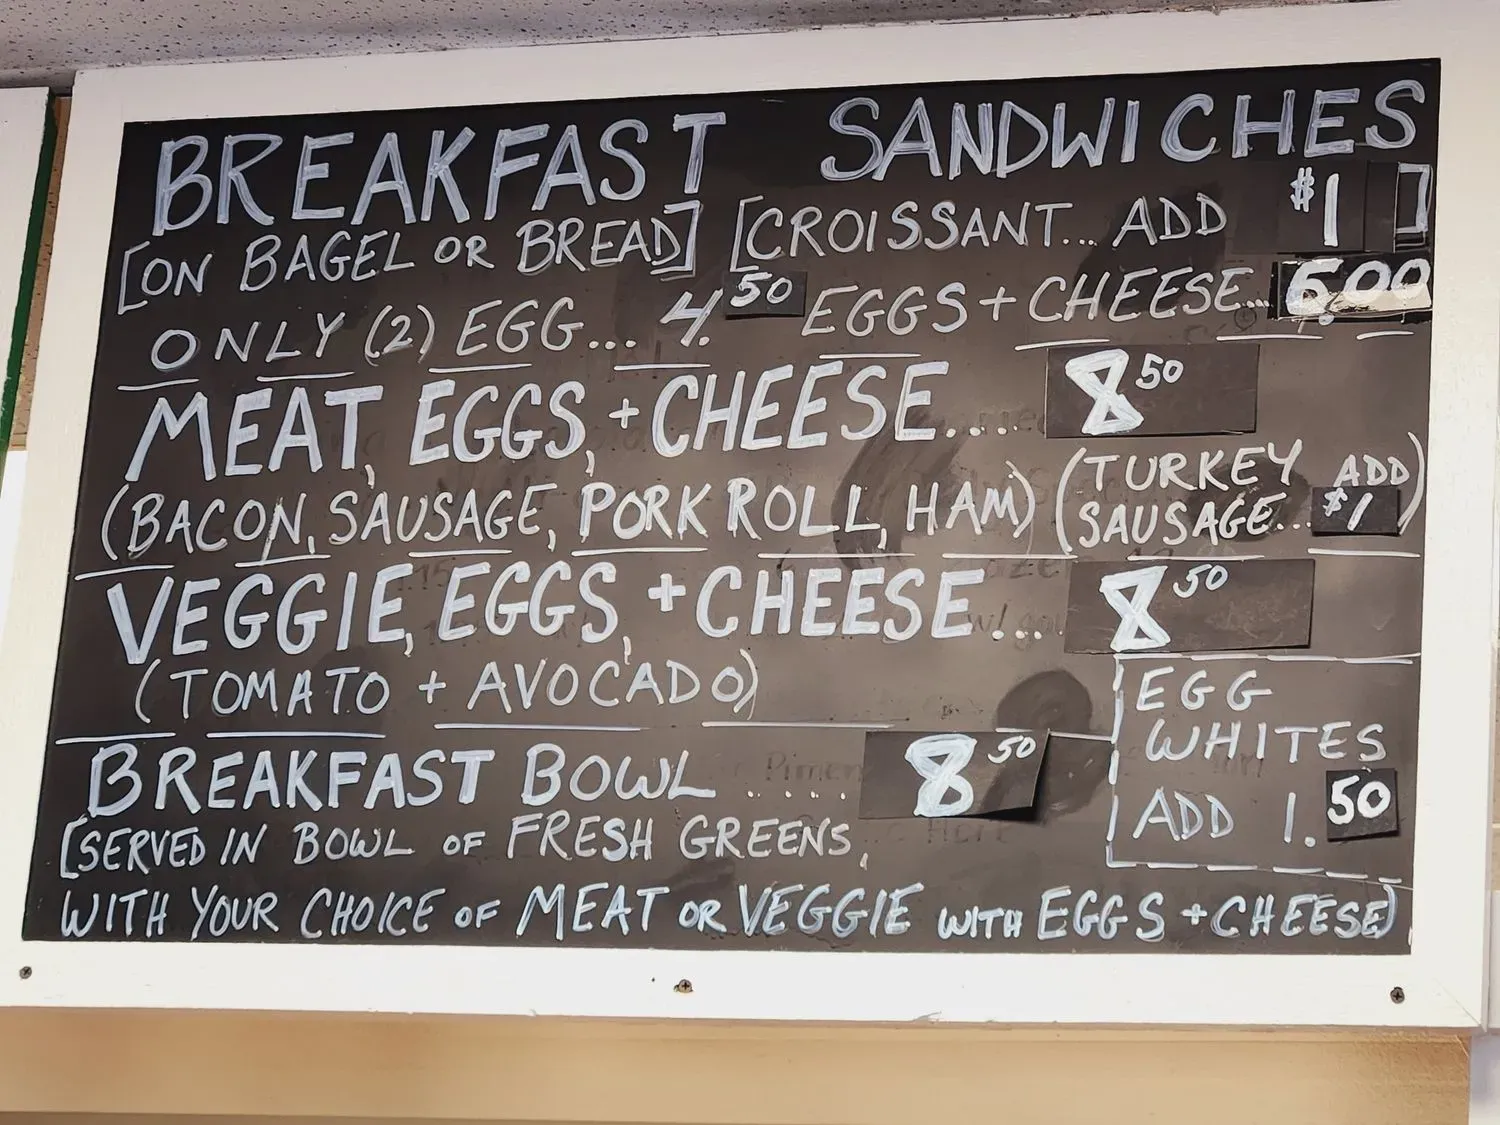 BREAKFAST SANDWICHES
[ON BAGEL OR BREAD] [CROISSANT... ADD $1]
ONLY (2) EGG... 4.50 EGGS + CHEESE... 6.00
MEAT, EGGS, + CHEESE.... 8 50
(BACON, SAUSAGE, PORK ROLL, HAM) (TURKEY SAUSAGE... ADD $1)
VEGGIE, EGGS, + CHEESE... 8 50
(TOMATO + AVOCADO)
EGG
WHITES
ADD 1.50
BREAKFAST BOWL .... 8 50
[SERVED IN BOWL OF FRESH GREENS,
WITH YOUR CHOICE OF MEAT OR VEGGIE WITH EGGS + CHEESE)